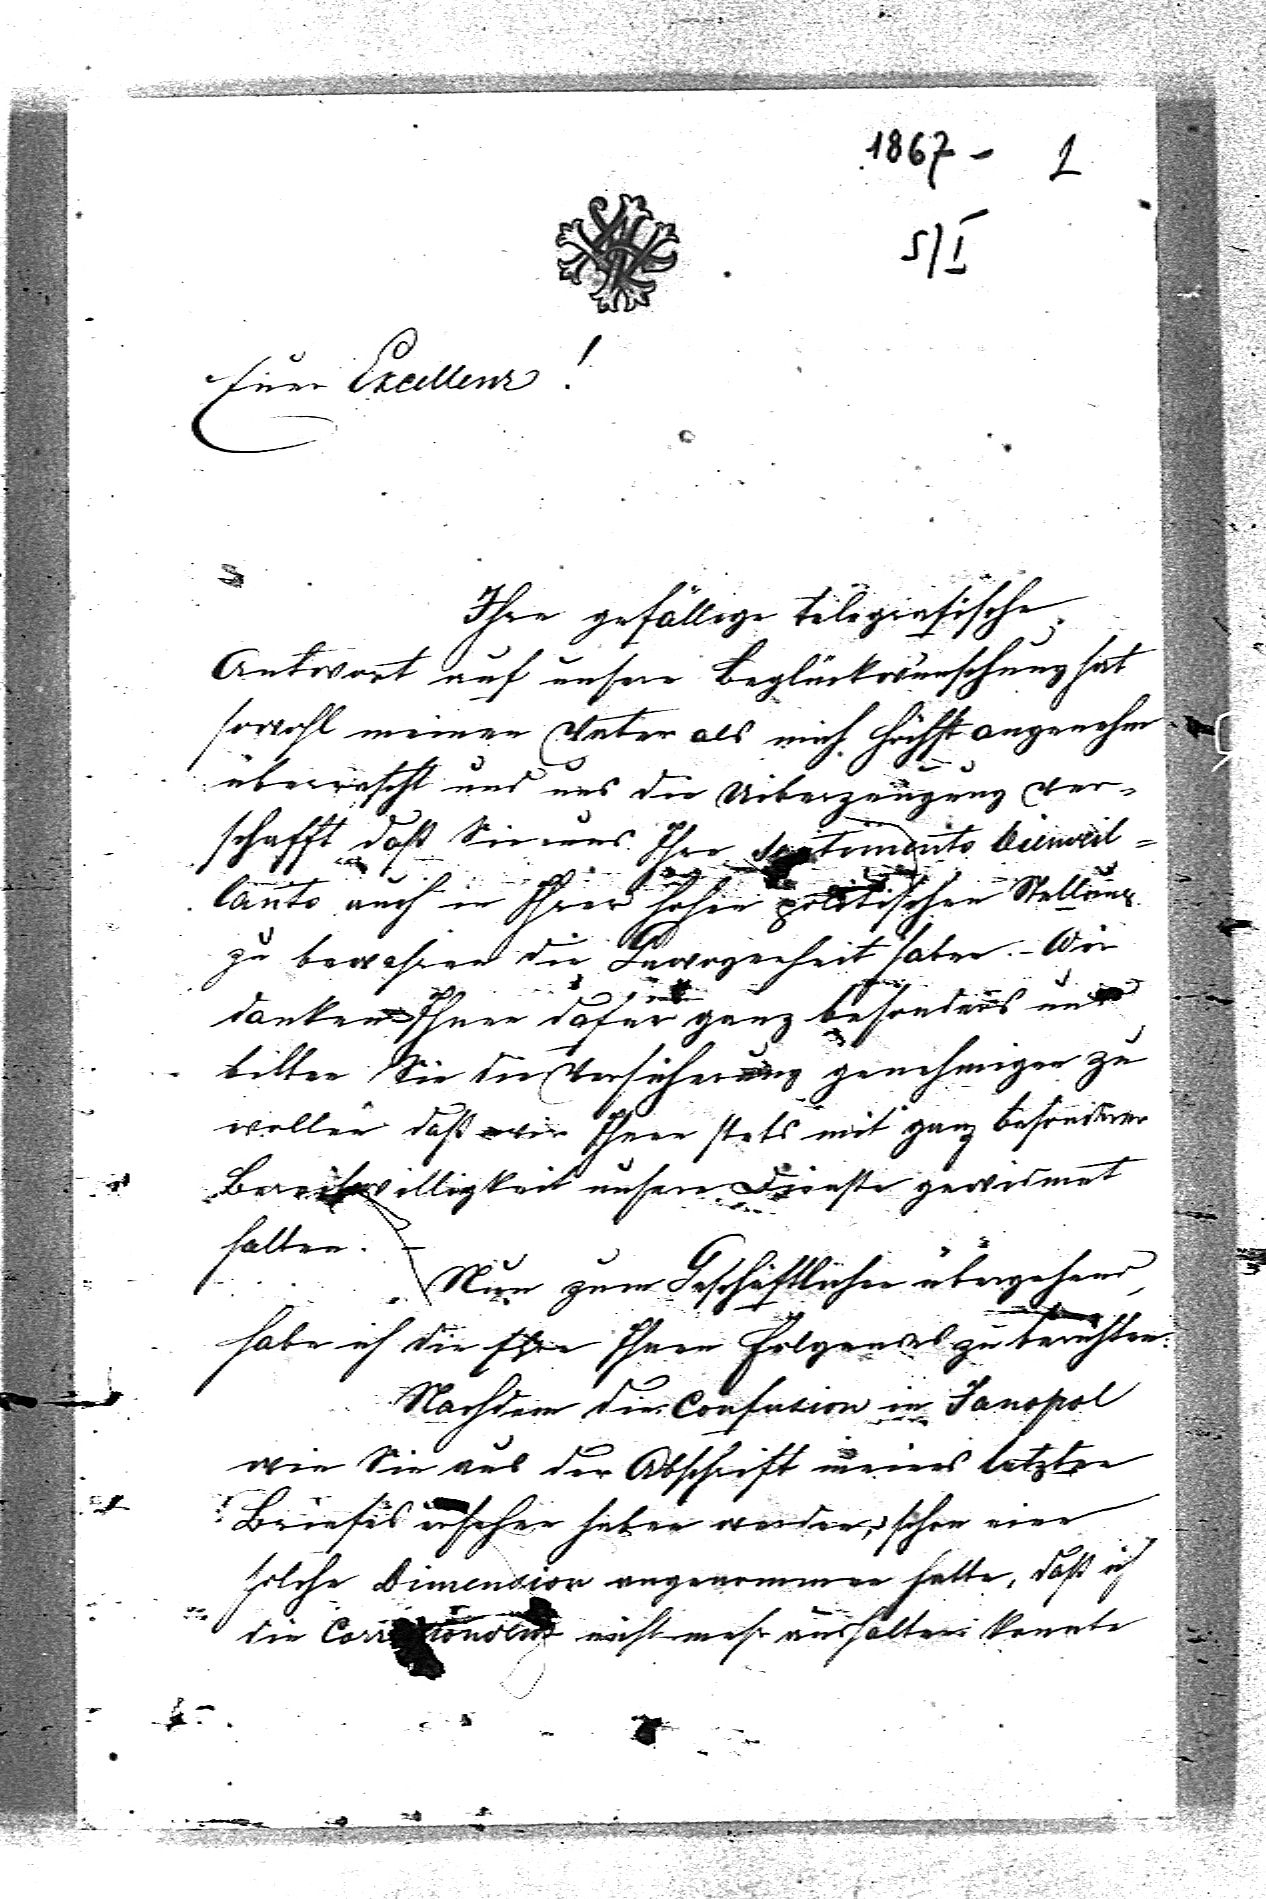 1867 - 1
5/I
Euer Excellenz!
Ihre gefällige telegrafische
Antwort auf unsere Beglückwünschung hat
sowohl meinen Vater als mich höchst angenehm
überrascht und uns die Uiberzeugung ver=
schafft daß Sie uns Ihre
auch in Ihrer hohen politischen Stellung
zu bewahren die Gewogenheit haben. - Wir
danken Ihnen dafür ganz besonders und
bitten Sie die Versicherung genehmigen zu
wollen daß wir Ihnen stets mit ganz besonderer
Bereitwilligkeit unsere Dienste gewidmet
halten. -
Nun zum Geschäftlichen übergehend,
habe ich die Ehre Ihnen Folgendes zu berichten.
Nachdem die Confusion in Janopol
wie Sie aus der Abschrift meines letzten
Briefes ersehen haben werden, schon eine
solche Dimension angenommen hatte, daß ich
die Correspondenz nicht mehr aushalten konnte